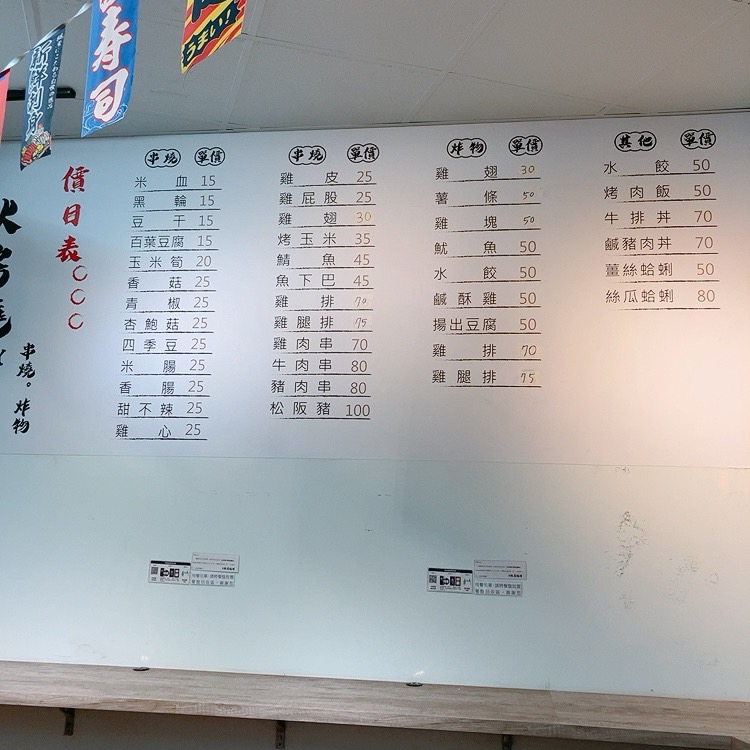 壽司
新鮮刺身
うまい!
價目表○○○
串燒。炸物
串燒 單價
米血 15
黑輪 15
豆干 15
百葉豆腐 15
玉米筍 20
香菇 25
青椒 25
杏鮑菇 25
四季豆 25
米腸 25
香腸 25
甜不辣 25
雞心 25
串燒 單價
雞皮 25
雞屁股 25
雞翅 30
烤玉米 35
鯖魚 45
魚下巴 45
雞排 70
雞腿排 75
雞肉串 70
牛肉串 80
豬肉串 80
松阪豬 100
炸物 單價
雞翅 30
薯條 50
雞塊 50
魷魚 50
水餃 50
鹹酥雞 50
揚出豆腐 50
雞排 70
雞腿排 75
其他 單價
水餃 50
烤肉飯 50
牛排丼 70
鹹豬肉丼 70
薑絲蛤蜊 50
絲瓜蛤蜊 80